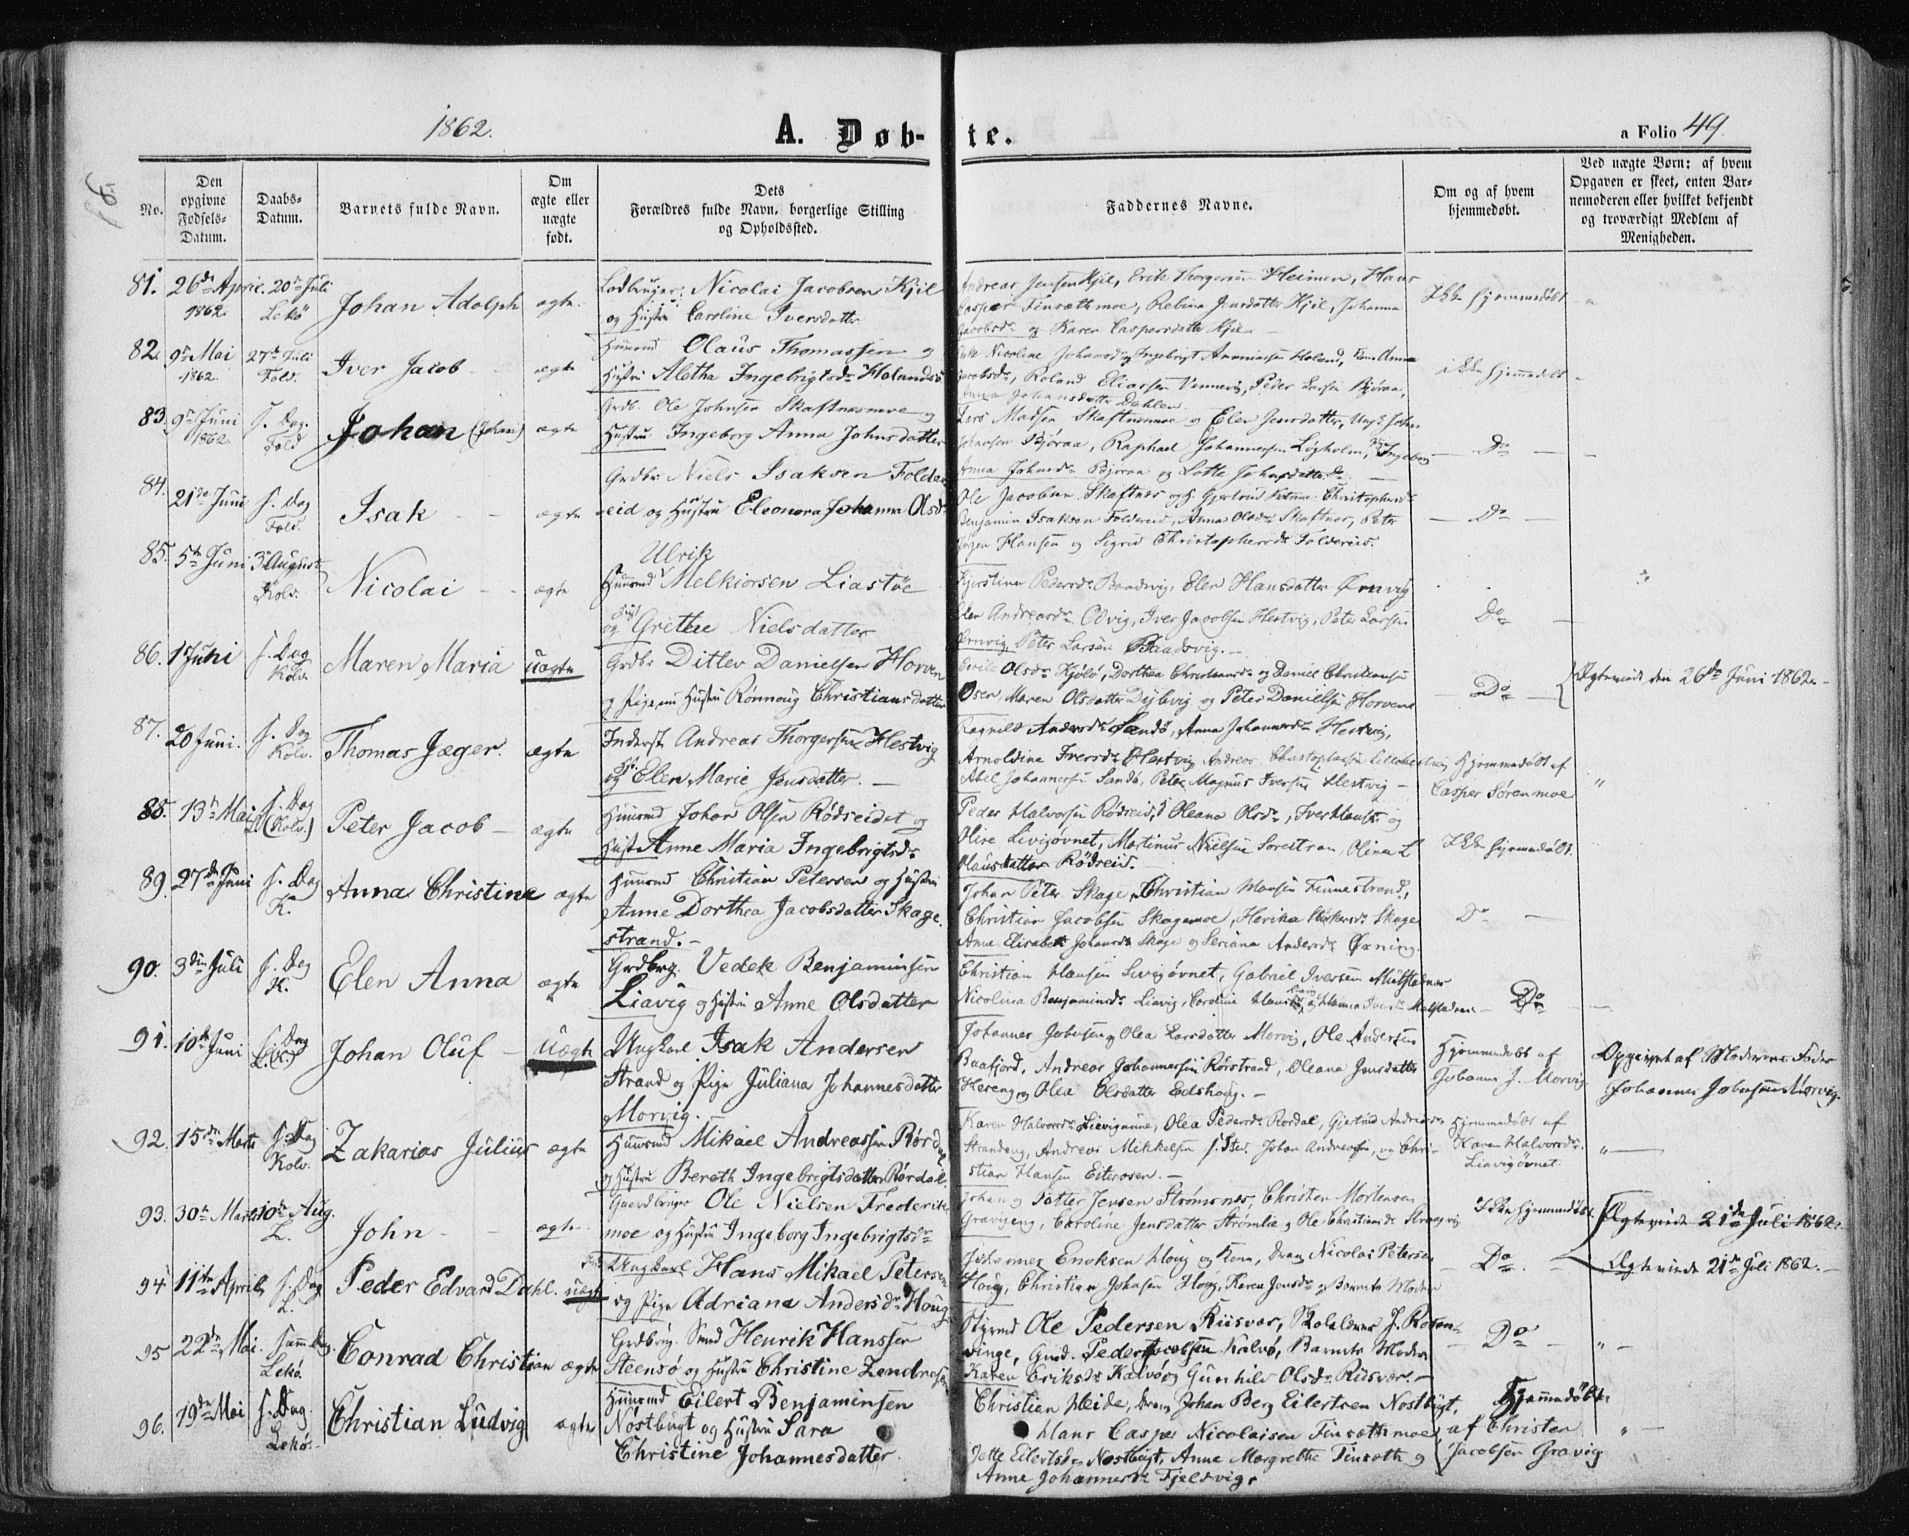 1862.
A. Døb-
te.
a Folio 49.
No.
Den
opgivne
Fødsels-
Datum.
Daabs-
Datum.
Barnets fulde Navn.
Om
ægte eller
uægte
født.
Dets
Forældres fulde Navn, borgerlige Stilling
og Opholdssted.
Faddernes Navne.
Om og af hvem
hjemmedøbt.
Ved uægte Børn: af hvem
Opgaven er skeet, enten Bar-
nemoderen eller hvilket bekjendt
og troværdigt Medlem af
Menigheden.
81. 26de April 20de Juli
1862. Lekö
Johan Adolph ægte.
Nicolai Jacobsen Kjil
og Hustru Caroline Iversdatter
Andreas Jensen Kjil, Erik Heimen, Hans
Casper Finsætmoe, Rebina Jensdatter Kjil, Johanna
Jacobsdr og Karen Caspersdatter Kjil
Ikke hjemmedöbt
82. 9de Mai 27de Juli
1862. Fold.
Iver Jacob ægte
Huusmd Olaus Thomassen og
Hustru Aletha Ingebrigtsdr Holandsö
Nicoline Johansdr Ingebrigt Holand, Anna
Jacobsdr, Roland Eliassen Vennevig, Peder Larsen Björaa,
Johansdatter Dahlen.
ikke hjemmedöbt
83. 9de Juni s. Dag.
1862. Fold
Johan (Johan) ægte
Grdb. Ole Johnsen Skaftnæsmoe og
Hustru Ingeborg Anna Johnsdatter
Lars Madsen Skaftnesmoe og Elen Jensdatter, Ungk John
Johansen Björaa, Raphael Johannessen Lögholm, Ingeborg
Anna Johnsdr Björaa og Lotte Johnsdatter
Do
84. 21de Juni s. Dag
Fold.
Isak ægte
Grdbr Niels Isaksen Folda-
reid og Hustru Eleonora Johanna Olsdr
Ole Jacobsen Skaftnes og H. Gjertrud Christophersdr
Benjamin Isaksen Foldereid, Anna Olsdr Skaftnes, Peter
Jörgen Hansen og Sigrid Christophersdr Foldereid.
Do
85. 5te Juni 3 August
Kolv.
Nicolai ægte
Ulrik
Huusmd Melkiorsen Liastöe
og Hust Grethe Nielsdatter
Kjerstina Pedersdr Baadsvig, Elen Hansdatter Örnvig
Elen Andreasdr Odvig, Iver Jacobsen Hestvig, Peter Larsen
Örnvig Peter Larsen Baadsvig.
Do
86. 1 Juni s. Dag
Kolv.
Maren Maria uægte
Grdbr Ditlev Danielsen Horven
og Pige, nu Hustru Rønnoug Christiansdatter
Olsdr Kjölö, Dorthea Christiansdr og Daniel Christiansen
Osen Maren Olsdatter Dybvig og Peter Danielsen Horven
Do
Ægteviede den 26de Juni 1862.
87. 20 Juni. s. Dag
Kolv.
Thomas Jæger. ægte
Inderst Andreas Thorgersen Hestvig
og Hst. Elen Marie Jensdatter.
Ragnild Andersdr Sandö, Anna Johannesdr Hestvig,
Arnoldine Iversdr Hestvig Andreas Christophersen Lillehestvig
Abel Johannessen Sandö, Peter Magnus Iversen Hestvig
Hjemmedöbt af
Casper Sörenmoe
88. 13de Mai s. Dag
(Kolv.)
Peter Jacob ægte
Huusmd Johan Olsen Rödseidet og
Hust Anne Maria Ingebrigtsdr
Peder Halvorsen Rödseid, Oleana Olsdr, Iver Hansen og
Olise Livigövnet, Martinus Nielsen Sörestran, Olina L
Olausdatter Rödseid.
Ikke hjemmedöbt.
89. 27de Juni s. Dag
K.
Anna Christine ægte
Huusmd Christian Petersen og Hustru
Anne Dorthea Jacobsdatter Skage-
strand.
Johan Peter Skage, Christian Hansen Finnestrand,
Christian Jacobsen Skagemoe, Herika Skage
Anne Elisabet Johansdr Skage og Seriana Andersdr Öxning.
Do
90. 3die Juli s. Dag
K.
Elen Anna ægte
Grdbrg. Vedek Benjaminsen
Liavig og Hustru Anne Olsdatter
Christian Hansen Livigövnet, Gabriel Iversen Mulstadnes
Nicolina Benjaminsdr Liavig, Caroline Hansdr Liavig og Hanna Iversdr Mulstadnes
Do
91. 10de Juni s. Dag
Johan Oluf uægte
Ungkarl Isak Andersen
Strand og Pige Juliana Johannesdatter
Morvig.
Johannes Jobusen og Olea Larsdatter Morvig, Ole Andersen
Baafjord, Andreas Johannessen Rörstrand, Oleana Jensdatter
Hereng og Olea Olsdatter Edshaug.
Hjemmedöbt af
Johannes J. Morvig
Opgivet af Moderens Fader
Johannes Jobusen Morvig.
92. 15de Marts s. Dag
Kolv.
Zakarias Julius ægte
Huusmd Mikael Andreassen Rørdal
og Hustru Bereth Ingebrigtsdatter Rørdal.
Karen Halvorsdr Livigövne, Olea Pedersdr Rørdal, Gjertrud Andreasdr
Strandeng, Andreas Mikkelsen s. Sted Johan Andreassen, og Chri-
stian Hansen Eiterosen.
Hjemmedöbt af
Karen Halvorsdr
Liavigövnet.
93. 30te Marts 10de Aug.
L.
John ægte
Gaardbruger Ole Nielsen Frederik-
moe og Hustru Ingeborg Ingebrigtsdr
Johan og Petter Jensen Strömsnes, Christen Mortensen
Gravseng, Caroline Jensdatter Strömlie og Ole Christiansen
Ikke hjemmedöbt.
Ægteviede 21de Juli 1862.
94 11te April s. Dag
L.
Peder Edvard Dahl. uægte
Ungkarl Hans Mikael Petersen
og Pige Adriana Andersdr Houg
Johannes Enoksen Houg og Kone, Dreng Nicolai Petersen
Houg, Christian Johnsen Houg, Karen Jensdr og Barnets Moder
Do.
Ægteviede 21de Juli 1862.
95 22de Mai. samme Dag.
Lekö.
Conrad Christian ægte
Grdbrg. Smed Henrik Hanssen
Steensö og Hustru Christine Zendresen
Styrmd Ole Pedersen Riisvær, Skolelærer J. Rosen-
vinge, Gmd. Peder Jacobsen Kalvö, Barnets Moder
Karen Eriksdr Kalvö og Gunhild Olsdr Riisvær.
Do
96. 19de Mai s. Dag.
Lekö.
Christian Ludvig ægte
Huusmd Eilert Benjaminsen
Nostbugt og Hustru Sara
Christine Johannesdatter
Christian Heide, Dreng Johan Berg Eilertsen Nostbugt,
Hans Casper Nicolaisen Finsætmoe,
Jette Eilertsdr Nostbugt, Anne Margrethe Finsæth og
Anne Johannesdr Fjeldvig.
Hjemmedöbt
af Christen
Jacobsen Gravig